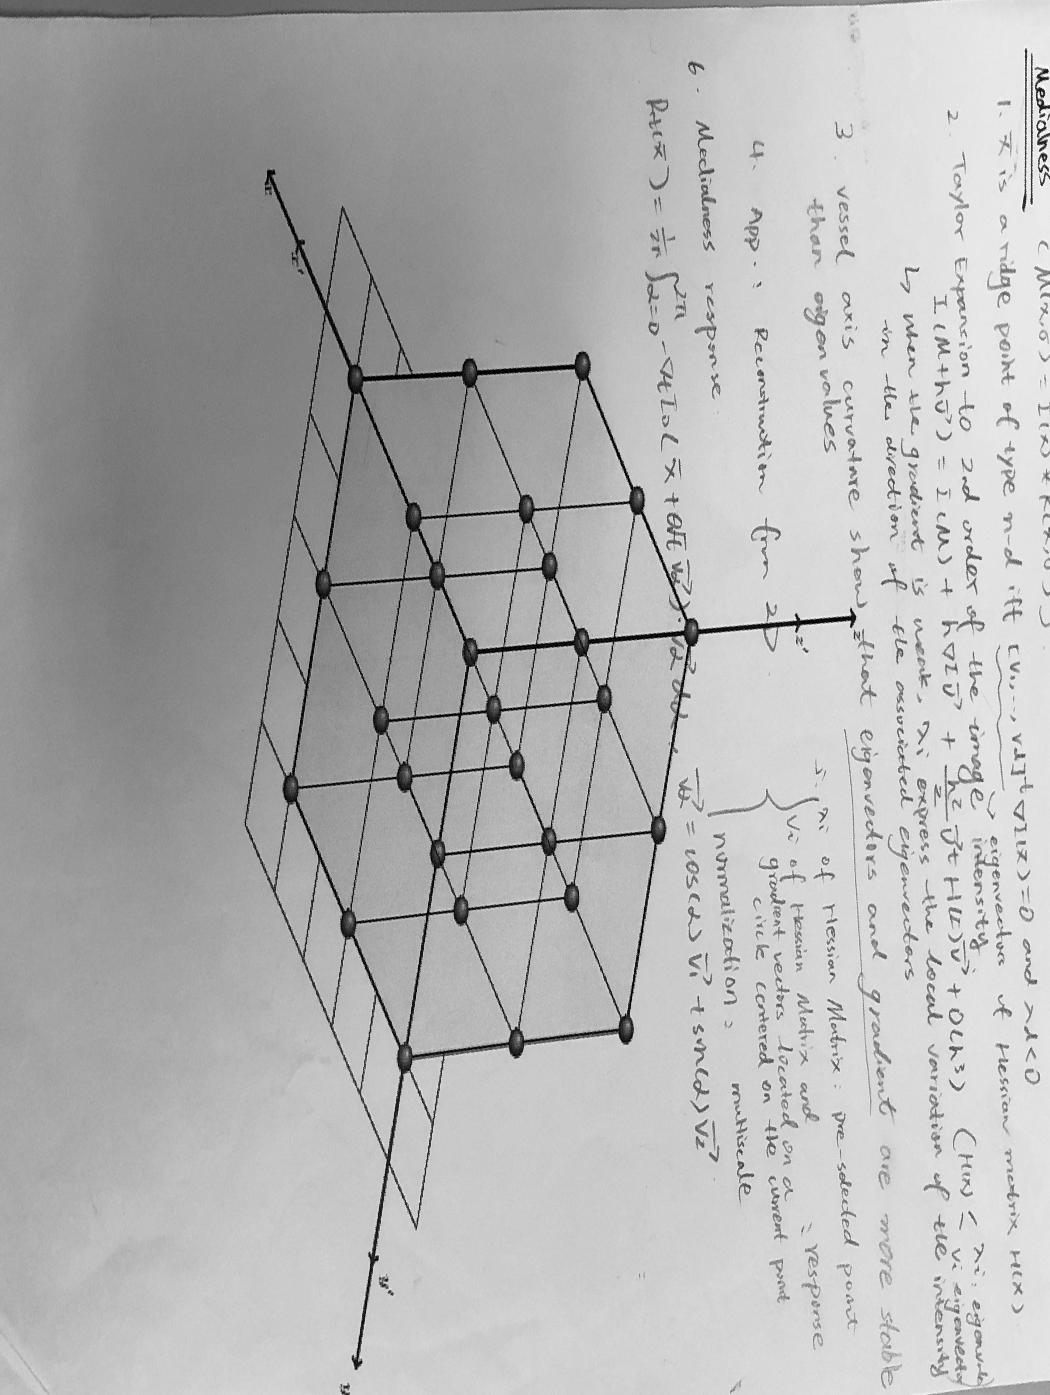 Medialness (M(x,σ) = I(x) * K(x,σ))
1. x̄ is a ridge point of type n-d iff [v1,..., vd]t ∇I(x)=0 and λd<0
↳ eigenvectors of Hessian matrix H(x)
2. Taylor Expansion to 2nd order of the image intensity
I(M+hv⃗) = I(M) + h∇I v⃗ + h²/2 v⃗t H(I) v⃗ + O(h³) (H(x) < λi: eigenvalue
vi eigenvector)
↳ when the gradient is weak, λi express the local variation of the intensity
in the direction of the associated eigenvectors
3. vessel axis curvature show that eigenvectors and gradient are more stable
than eigenvalues
4. App.: Reconstruction from 2D
λi of Hessian Matrix: pre-selected point
vi of Hessian Matrix and
gradient vectors located on a : response
circle centered on the current point
normalization: multiscale
6. Medialness response
R+(x̄) = 1/2π ∫α=0 2π -√t Iσ(x̄ + θ√t vα⃗).vα⃗ dα, vα⃗ = cos(α) v1⃗ + sin(α) v2⃗
x
x'
z
z'
y'
y